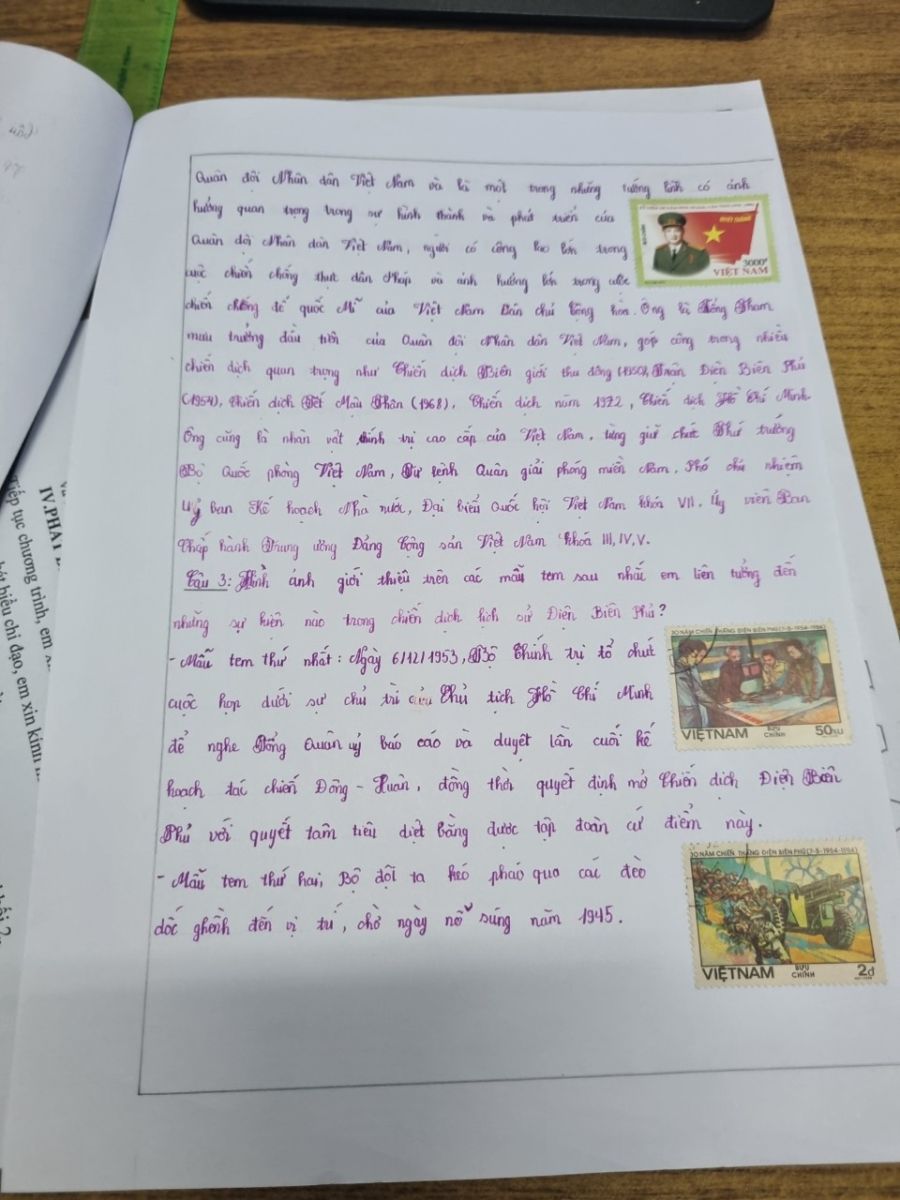 Quân đội Nhân dân Việt Nam và là một trong những tướng lĩnh có ảnh
hưởng quan trọng trong sự hình thành và phát triển của
Quân đội Nhân dân Việt Nam, người có công lao lớn trong
cuộc chiến chống thực dân Pháp và ảnh hưởng lớn trong cuộc
chiến chống đế quốc Mĩ của Việt Nam Dân chủ Cộng hòa. Ông là Tổng Tham
mưu trưởng đầu tiên của Quân đội Nhân dân Việt Nam, góp công trong nhiều
chiến dịch quan trọng như Chiến dịch Biên giới thu đông (1950), Trận Điện Biên Phủ
(1954), Chiến dịch Tết Mậu Thân (1968), Chiến dịch năm 1972, Chiến dịch Hồ Chí Minh.
Ông cũng là nhân vật chính trị cao cấp của Việt Nam, từng giữ chức Thứ trưởng
Bộ Quốc phòng Việt Nam, Tư lệnh Quân giải phóng miền Nam, Phó chủ nhiệm
Uỷ ban Kế hoạch Nhà nước, Đại biểu Quốc hội Việt Nam khóa VII, Ủy viên Ban
Chấp hành Trung ương Đảng Cộng sản Việt Nam khoá III, IV, V.
3000đ
VIỆT NAM
Câu 3: Hình ảnh giới thiệu trên các mẫu tem sau nhắc em liên tưởng đến
những sự kiện nào trong chiến dịch lịch sử Điện Biên Phủ?
- Mẫu tem thứ nhất: Ngày 6/12/1953, Bộ Chính trị tổ chức
cuộc họp dưới sự chủ trì của Chủ tịch Hồ Chí Minh
để nghe Tổng Quân uỷ báo cáo và duyệt lần cuối kế
hoạch tác chiến Đông - Xuân, đồng thời quyết định mở Chiến dịch Điện Biên
Phủ với quyết tâm tiêu diệt bằng được tập đoàn cứ điểm này.
30 NĂM CHIẾN THẮNG ĐIỆN BIÊN PHỦ (7-5-1954-1984)
VIỆTNAM BƯU CHÍNH 50xu
- Mẫu tem thứ hai, Bộ đội ta kéo pháo qua các đèo
dốc ghềnh đến vị trí, chờ ngày nổ súng năm 1945.
30 NĂM CHIẾN THẮNG ĐIỆN BIÊN PHỦ (7-5-1954-1984)
VIỆTNAM BƯU CHÍNH 2đ
IV.PHÁT
tiếp tục chương trình, em
hiểu chỉ đạo, em xin kính